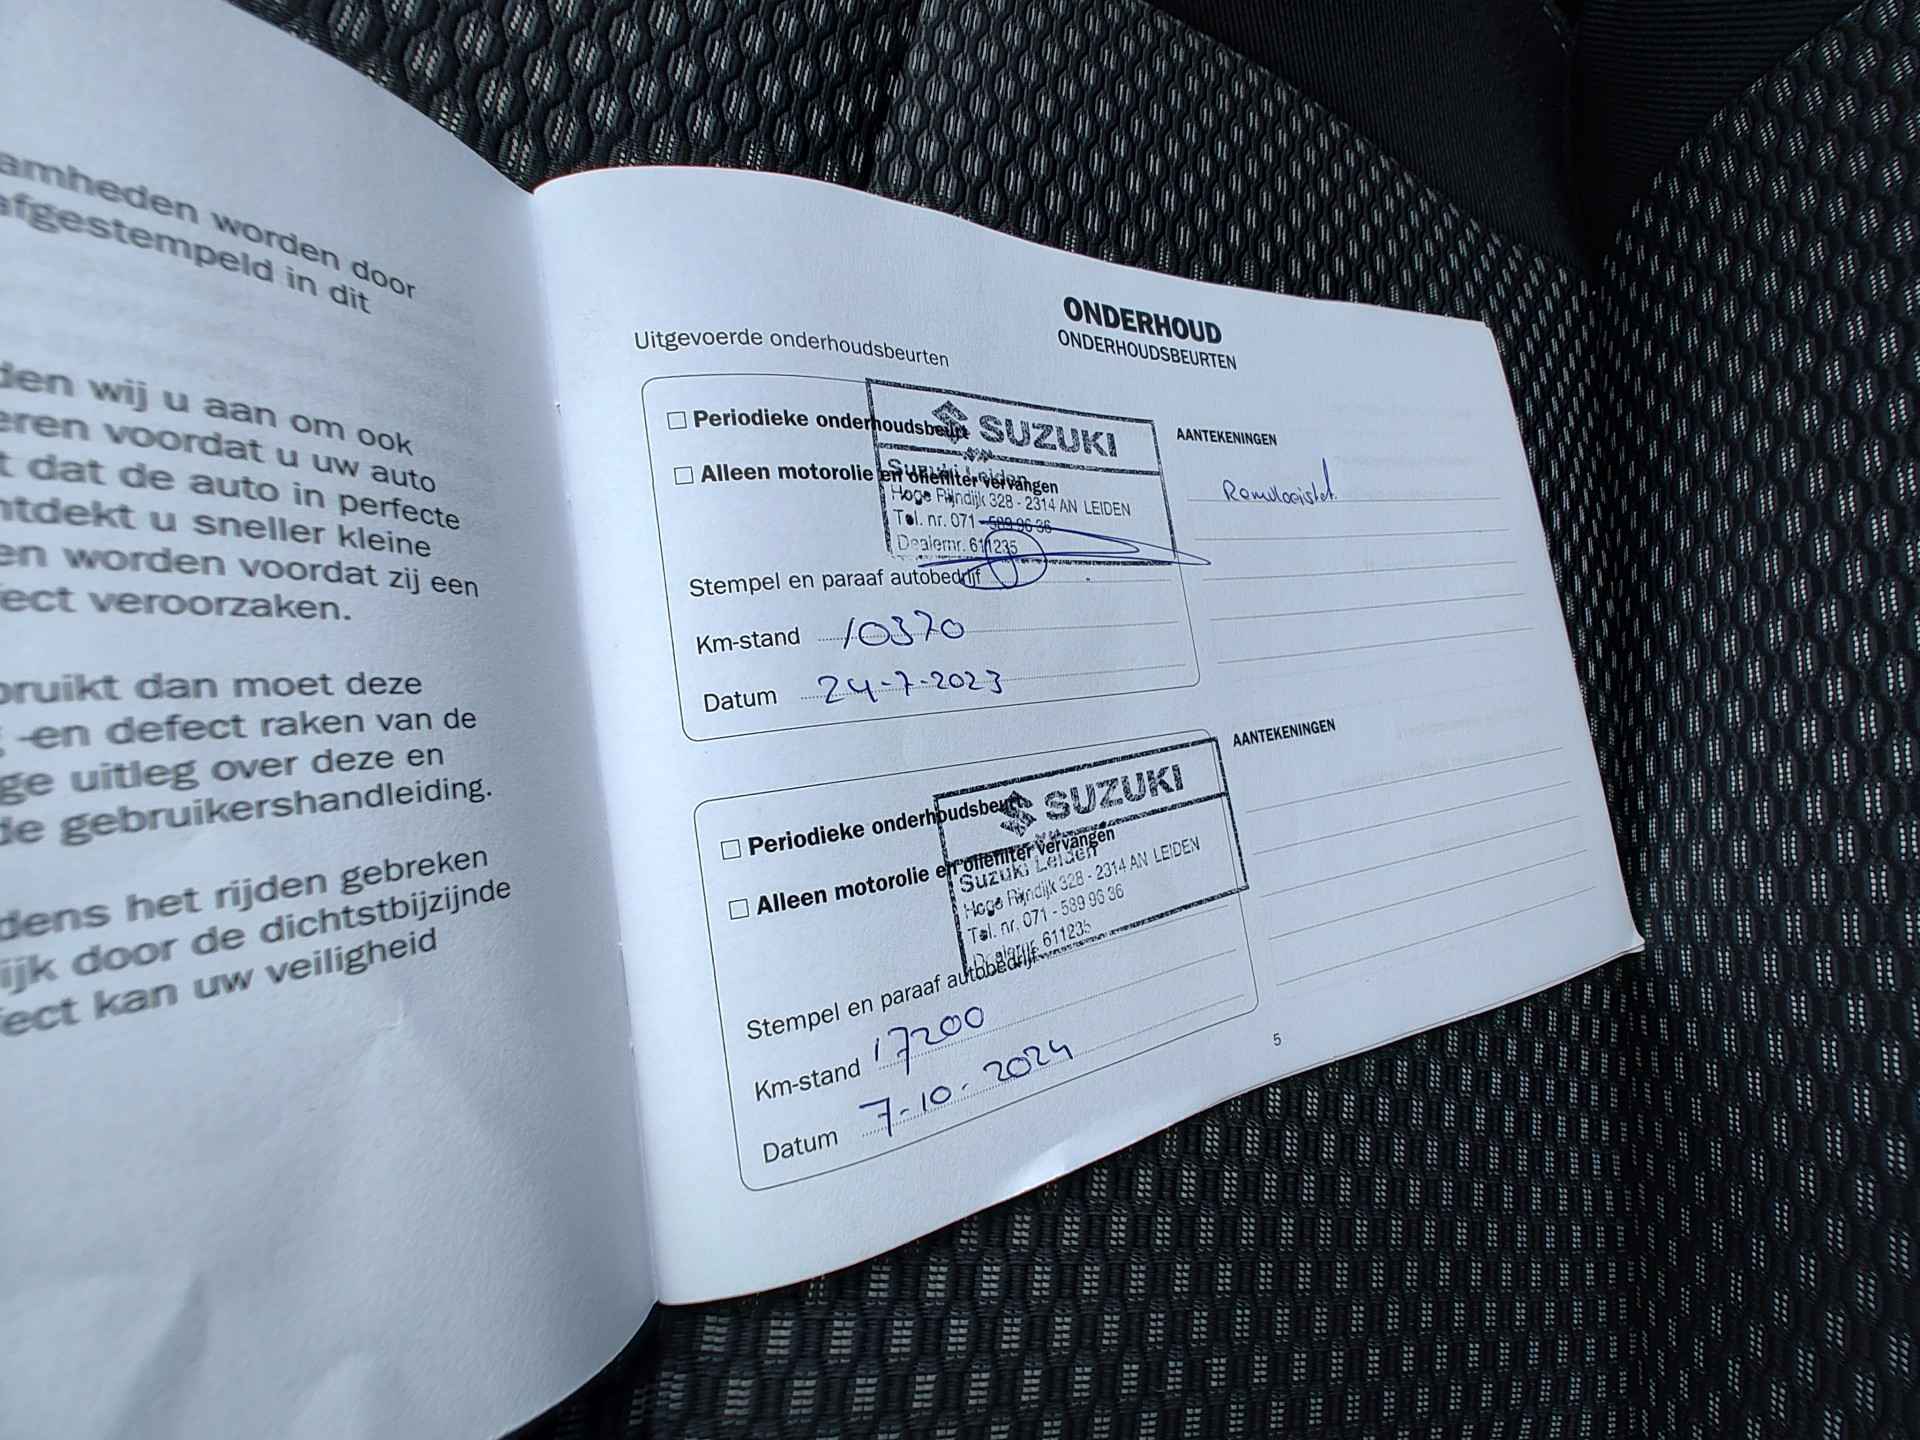 amheden worden door
afgestempeld in dit
den wij u aan om ook
eren voordat u uw auto
t dat de auto in perfecte
ntdekt u sneller kleine
en worden voordat zij een
fect veroorzaken.
bruikt dan moet deze
g -en defect raken van de
ge uitleg over deze en
de gebruikershandleiding.
dens het rijden gebreken
ijk door de dichtstbijzijnde
fect kan uw veiligheid
ONDERHOUD
ONDERHOUDSBEURTEN
Uitgevoerde onderhoudsbeurten
Periodieke onderhoudsbeurt
Alleen motorolie en oliefilter vervangen
SUZUKI
Suzuki Leiden
Hoge Rijndijk 328 - 2314 AN LEIDEN
Tel. nr. 071 - 589 96 36
Dealernr. 611235
Stempel en paraaf autobedrijf
Km-stand 10370
Datum 24-7-2023
AANTEKENINGEN
Periodieke onderhoudsbeurt
Alleen motorolie en oliefilter vervangen
SUZUKI
Suzuki Leiden
Hoge Rijndijk 328 - 2314 AN LEIDEN
Tel. nr. 071 - 589 96 36
Dealernr. 611235
Stempel en paraaf autobedrijf
Km-stand 17200
Datum 7-10-2024
AANTEKENINGEN
5